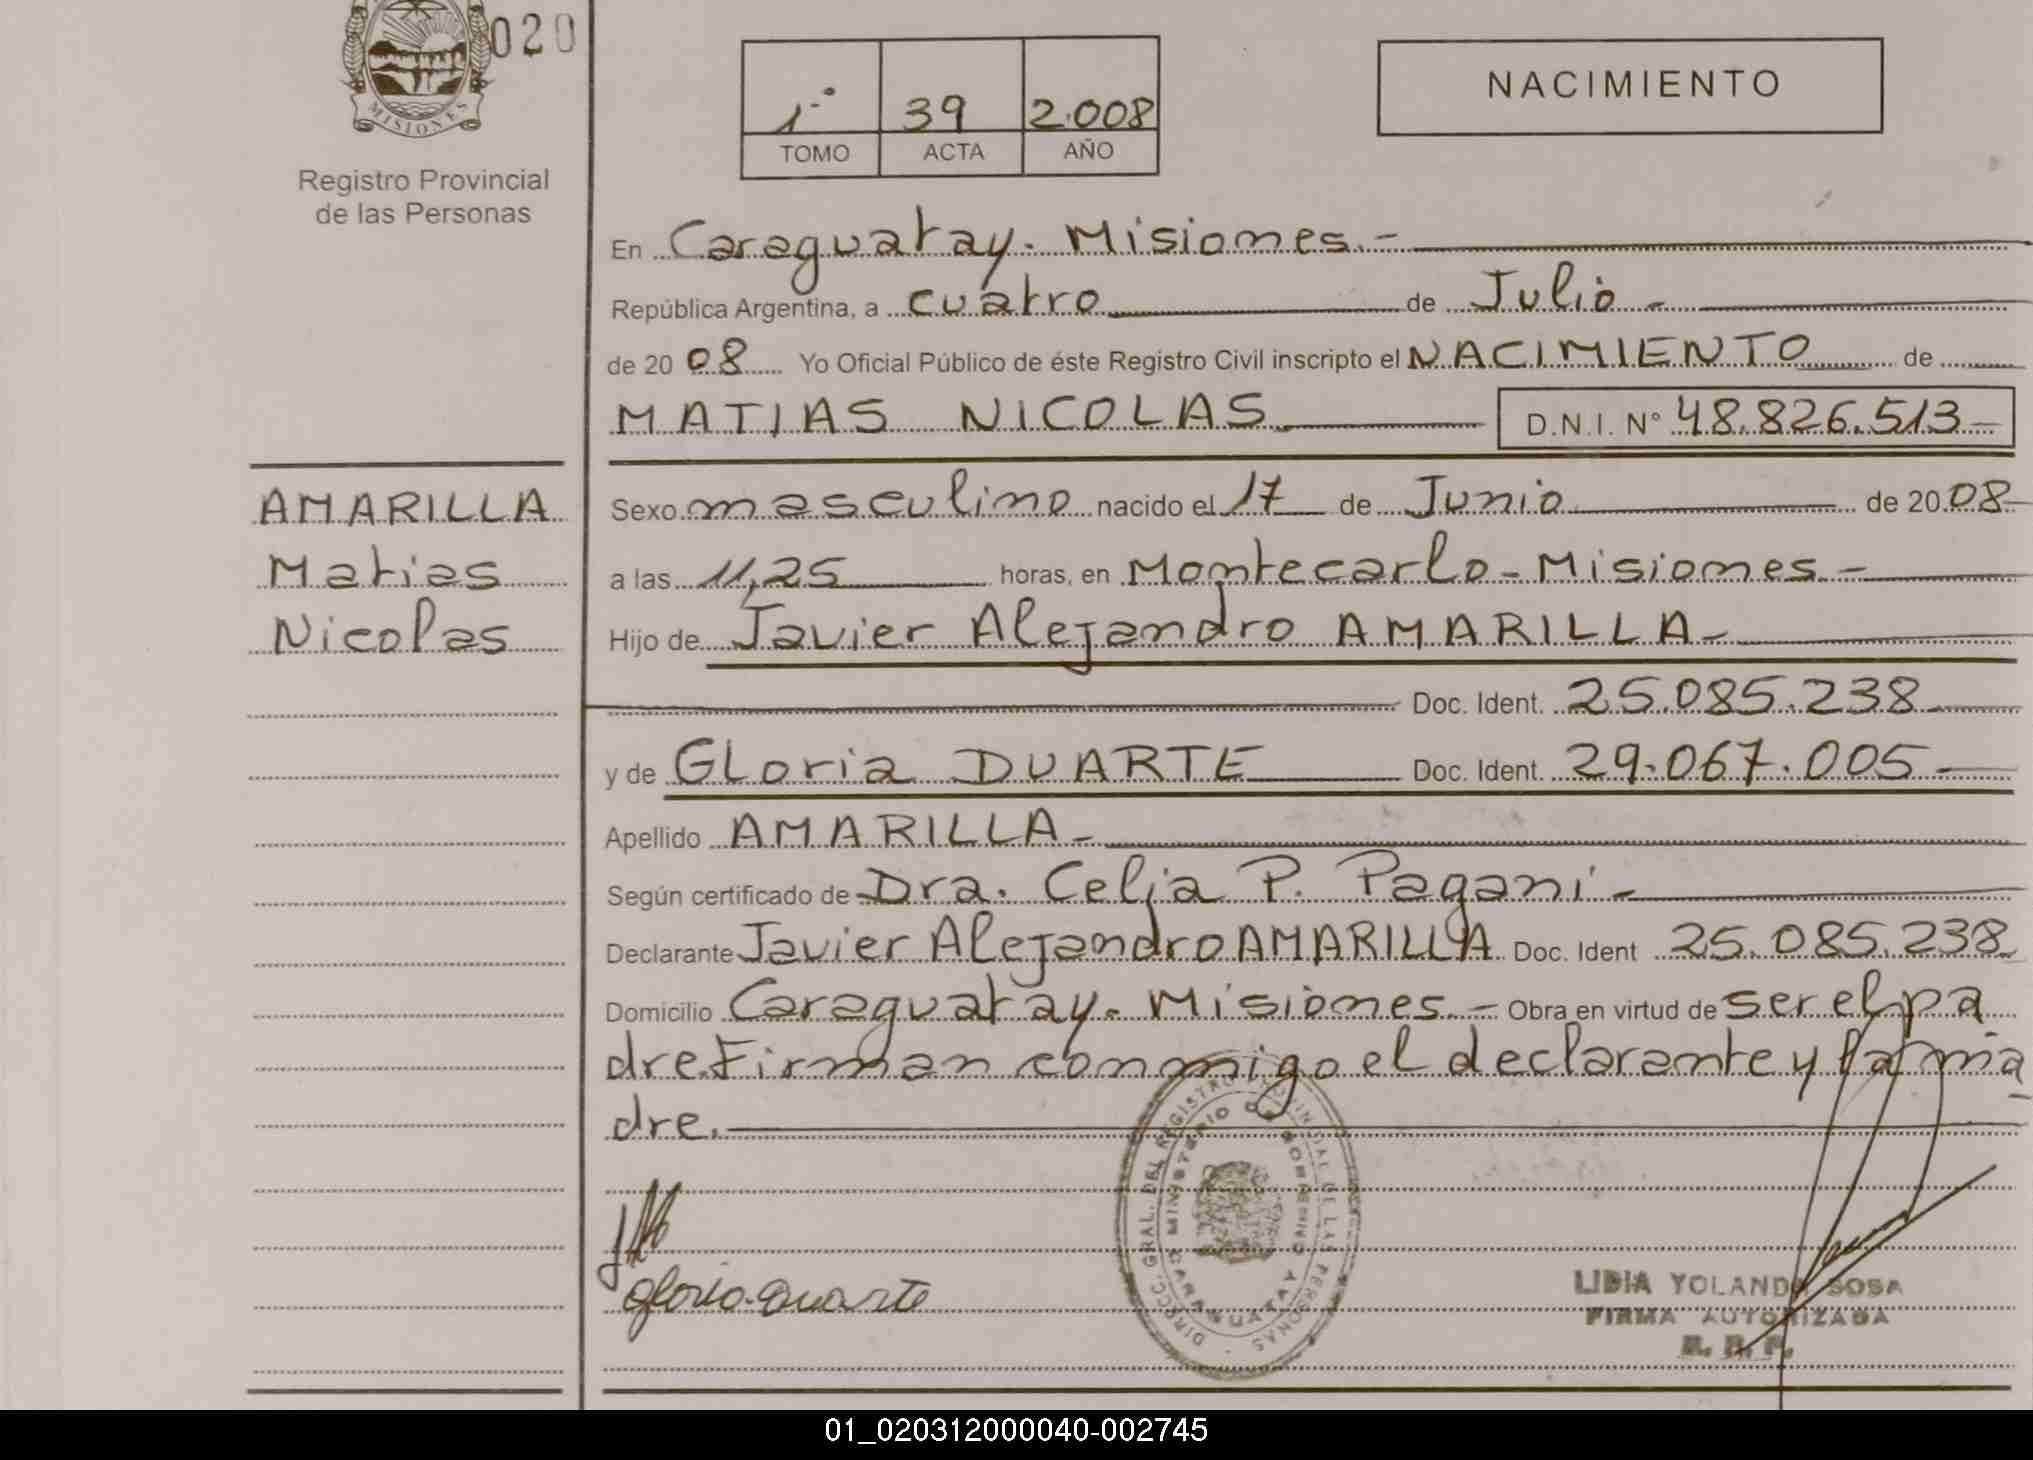 020
MISIONES
Registro Provincial
de las Personas
1º 39 2.008
TOMO ACTA AÑO
NACIMIENTO
En Caraguatay. Misiones.-
República Argentina, a cuatro de Julio -
de 20 08 Yo Oficial Público de éste Registro Civil inscripto el NACIMIENTO de
MATIAS NICOLAS. D.N.I. N° 48.826.513-
AMARILLA
Matias
Nicolas
Sexo masculino nacido el 17 de Junio de 20 08-
a las 11,25 horas, en Montecarlo - Misiones -
Hijo de Javier Alejandro AMARILLA -
Doc. Ident. 25.085.238-
y de Gloria DUARTE Doc. Ident. 29.067.005-
Apellido AMARILLA -
Según certificado de Dra. Celia P. Pagani -
Declarante Javier Alejandro AMARILLA Doc. Ident 25.085.238
Domicilio Caraguatay. Misiones - Obra en virtud de ser el pa
dre. Firman conmigo el declarante y la ma
dre.-
DIRECC. GRAL. DEL REGISTRO PROVINCIAL DE LAS PERSONAS
MINISTERIO DE GOBIERNO
CARAGUATAY
gloria Duarte
LIDIA YOLANDA SOSA
FIRMA AUTORIZADA
R. P. P.
01_020312000040-002745